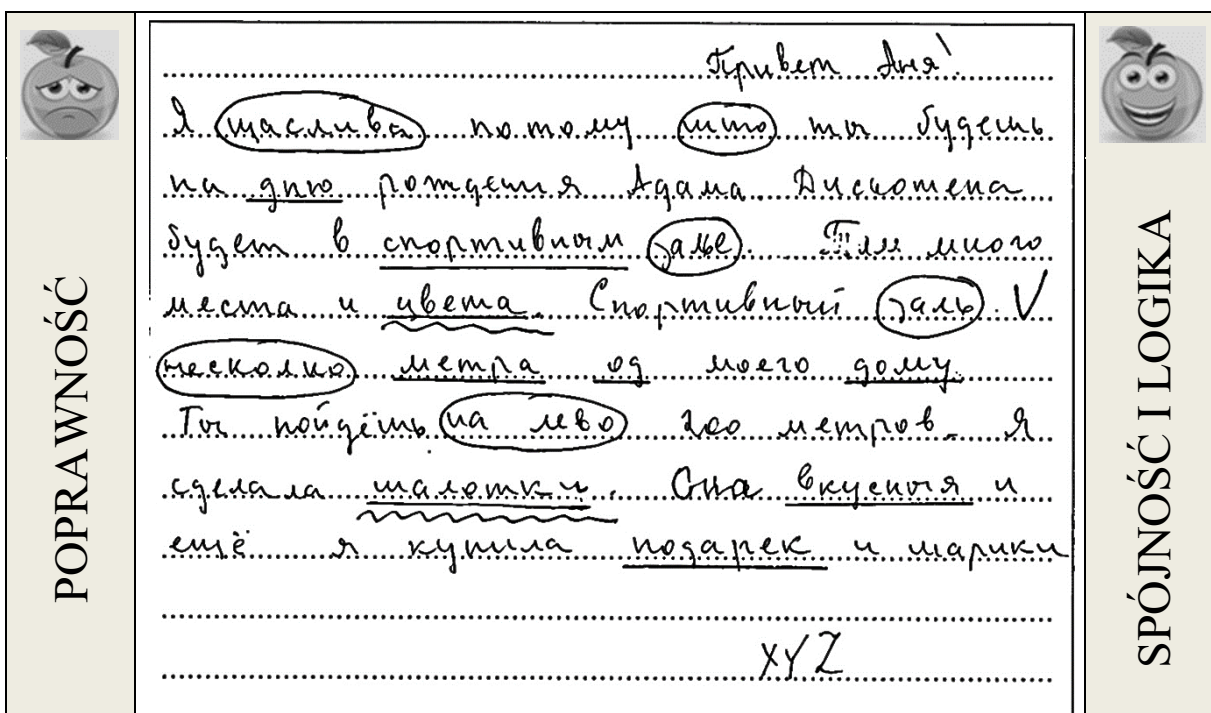 POPRAWNOŚĆ
Привет Аня!
Я щаслива потому што ты будешь
на дню рождения Адама. Дискотека
будет в спортивном залье. Там много
места и цвета. Спортивный заль. V
несколко метра од моего дому
Ты пойдёшь на лево 200 метров. Я
сделала шалотки. Она вкусныя и
ещё я купила подарек и шарики
XYZ
SPÓJNOŚĆ I LOGIKA